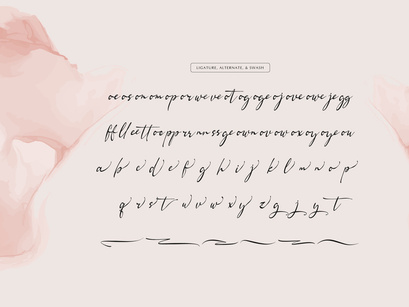 LIGATURE, ALTERNATE, & SWASH
oe os on om op or we ve ot og oge oj ove owe je gg
ff ll ee tt oe pp rr nn ss ge own ov ow ox oy oye ou
a b c d e f g h i j k l m n o p
q r s t u v w x y z g j y t